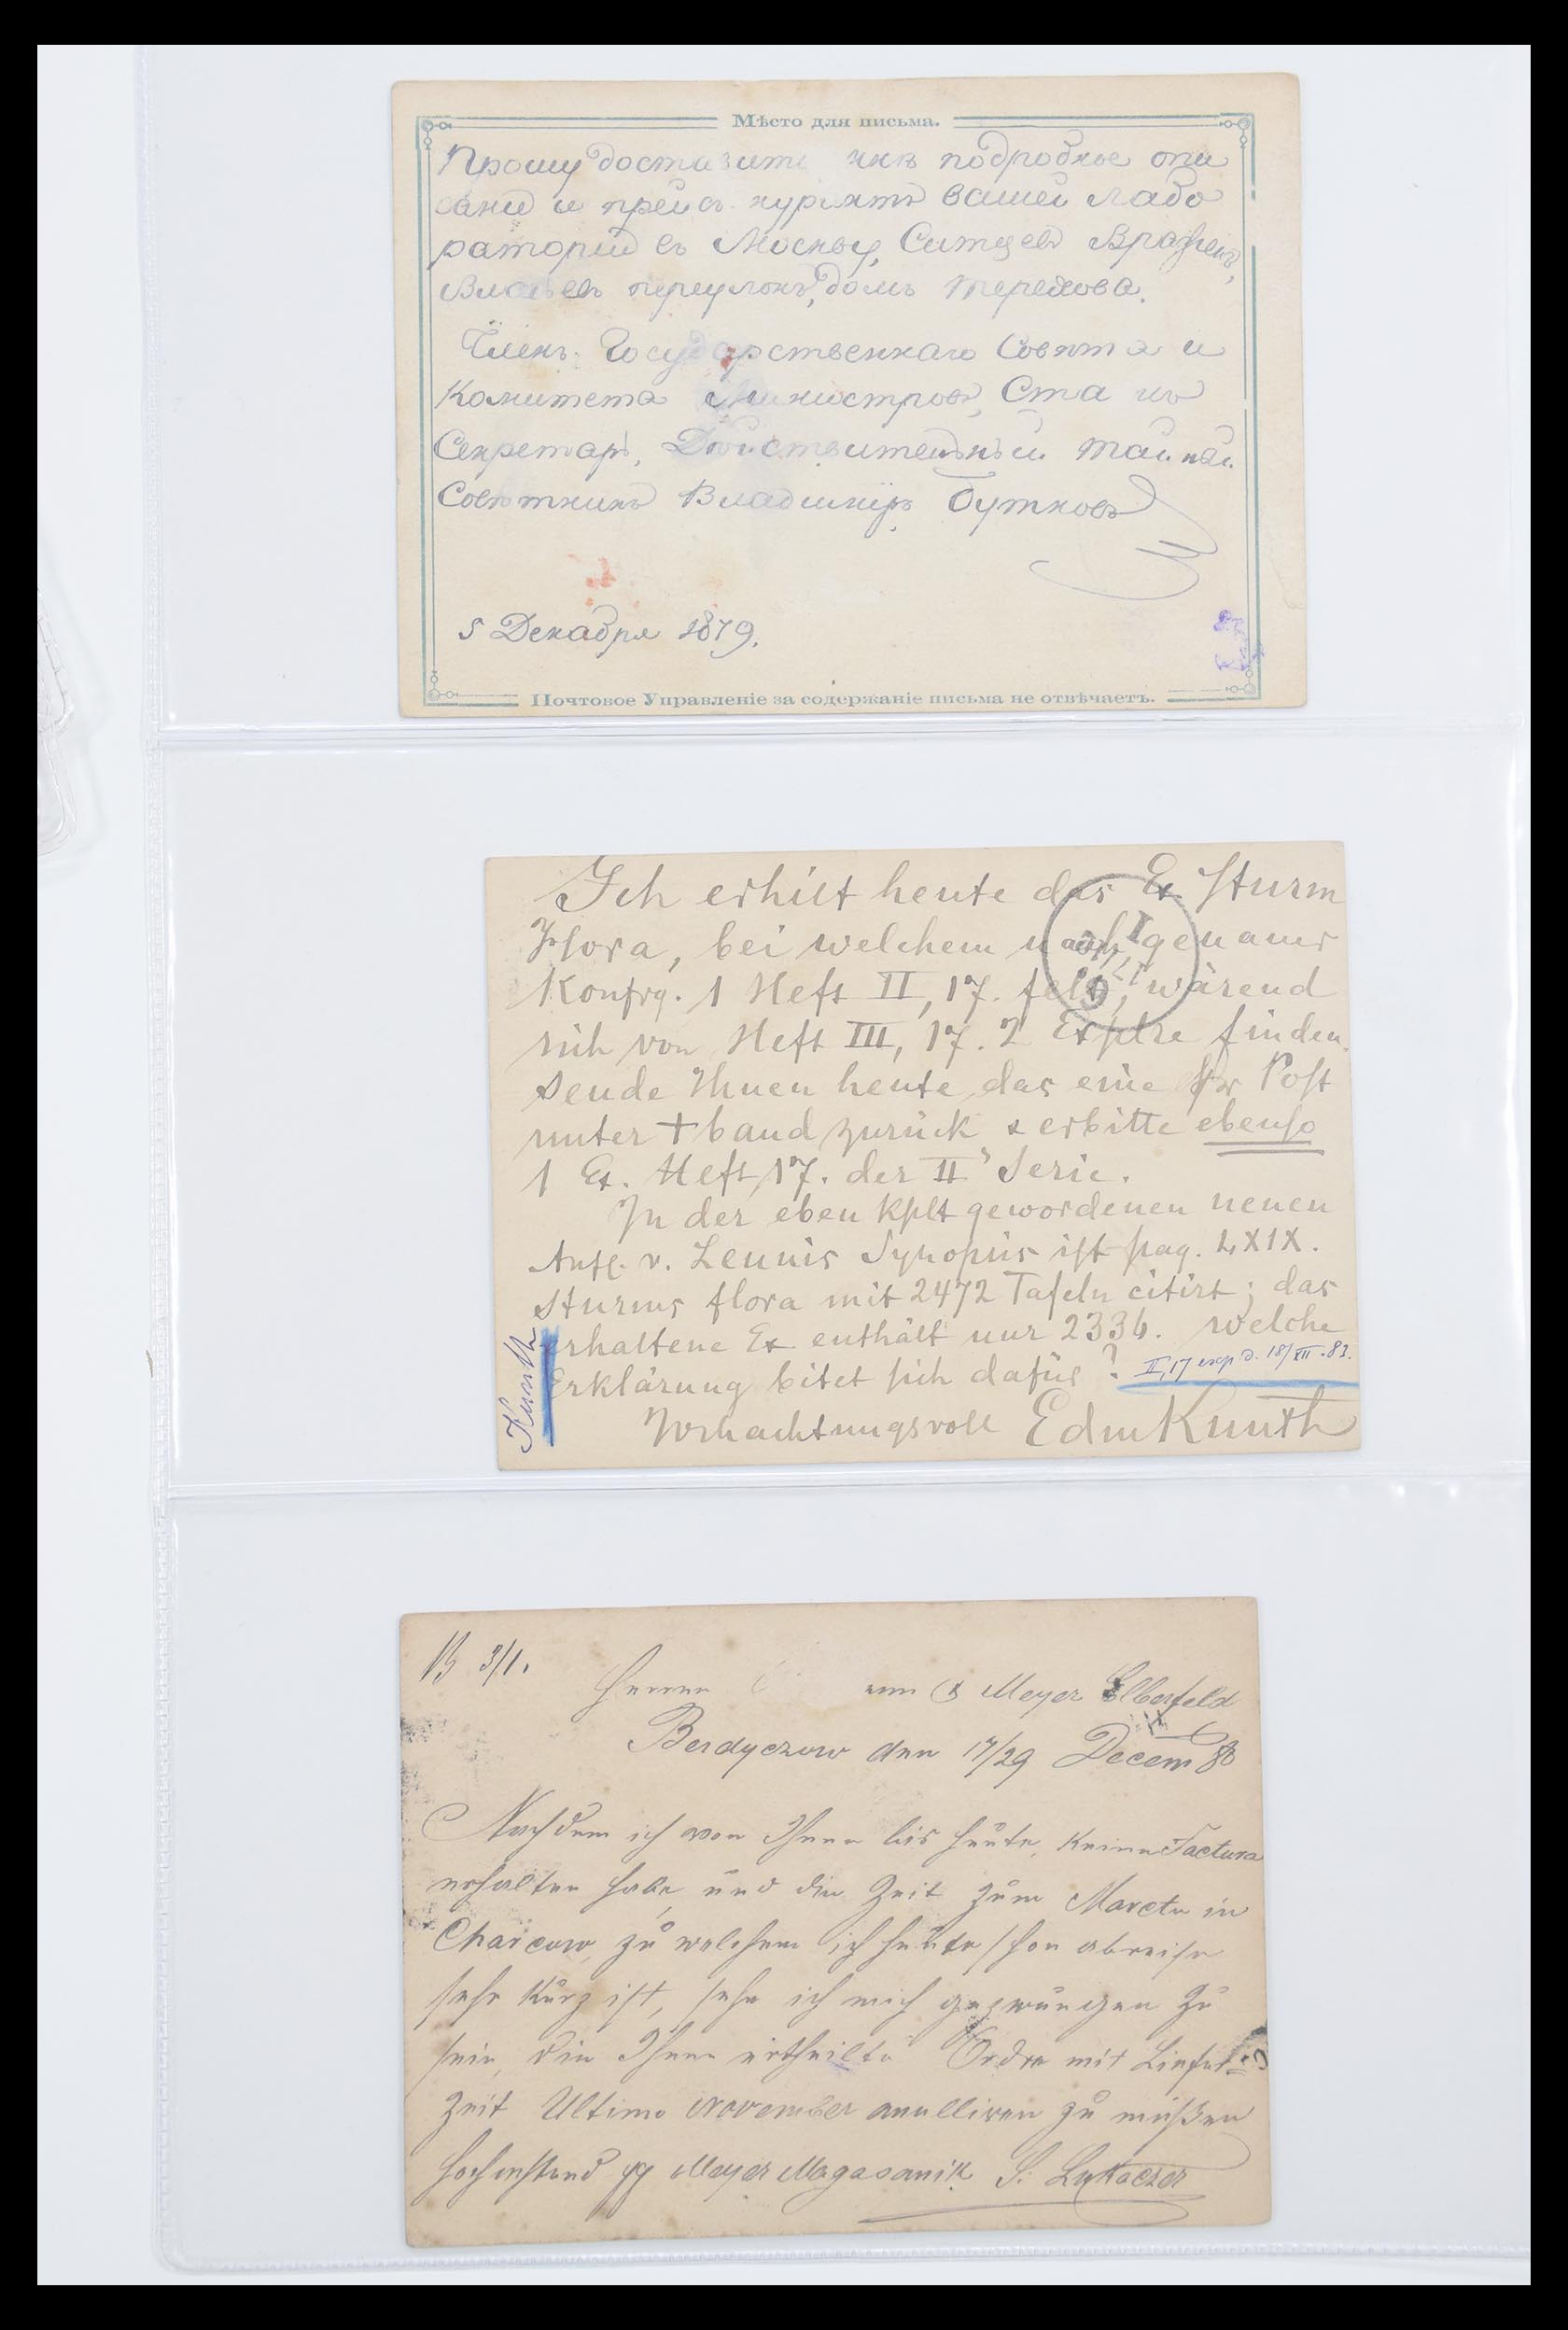 Мѣсто для письма.
Прошу доставить мнѣ подробное опи
саніе и прейсъ-курантъ вашей лабо
раторіи въ Москву, Ситцевъ Вражекъ,
Власьевъ переулокъ, домъ Терехова.
Членъ Государственнаго Совѣта и
Комитета Министровъ, Статсъ
Секретарь, Дѣйствительный Тайный
Совѣтникъ Владиміръ Бутковъ
5 Декабря 1879.
Почтовое Управленіе за содержаніе письма не отвѣчаетъ.
Ich erhilt heute das Ex Sturm
Flora, bei welchem nach genauer
Konfrg. 1 Heft II, 17. felt, wärend
sich von Heft III, 17. 2 Explre finden.
sende Ihnen heute das eine pr Post
unter + band zurück & erbitte ebenso
1 Ex. Heft 17. der II' Serie.
In der eben kplt gewordenen neuen
Aufl. v. Leunis Synopsis ist pag. LXIX.
Sturms flora mit 2472 Tafeln citirt; das
erhaltene Ex enthält nur 2336. welche
Erklärung bitet sich dafür?
II,17 exp d. 18/XII.83.
Hochachtungsvoll Edm Kunth
Kunth
B 3/1.
Herren & Meyer Elberfeld
Berdyczow den 17/29 Decem 80
Nachdem ich von Ihnen bis heute, keine Factura
erhalten habe, und die Zeit zum Marcte in
Charcow, zu welchem ich heute schon abreise
sehr kurz ist, sehe ich mich gezwungen zu
sein, die Ihnen ertheilte Ordre mit Liefer=
zeit Ultimo November anulliren zu müßen
Hochachtend pp Meyer Magasanik S: Lukaczer